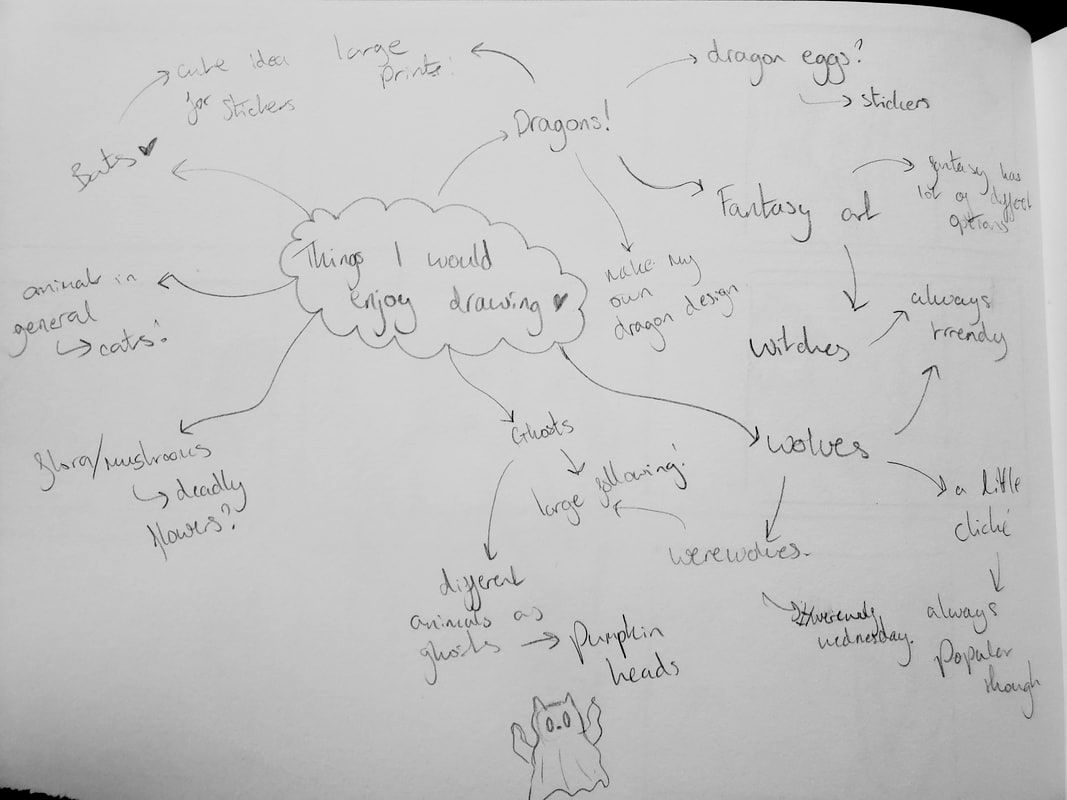 Things I would
enjoy drawing
Bats
cute idea
for stickers
large
prints!
Dragons!
dragon eggs?
stickers
make my
own
dragon design
Fantasy art
fantasy has
lot of diffent
options
witches
always
trrendy
wolves
a little
cliché
always
popular
though
werewolves.
wednesday.
Ghosts
large following!
different
animals as
ghosts
Pumpkin
heads
flora/mushrooms
deadly
flowers?
animals in
general
cats!